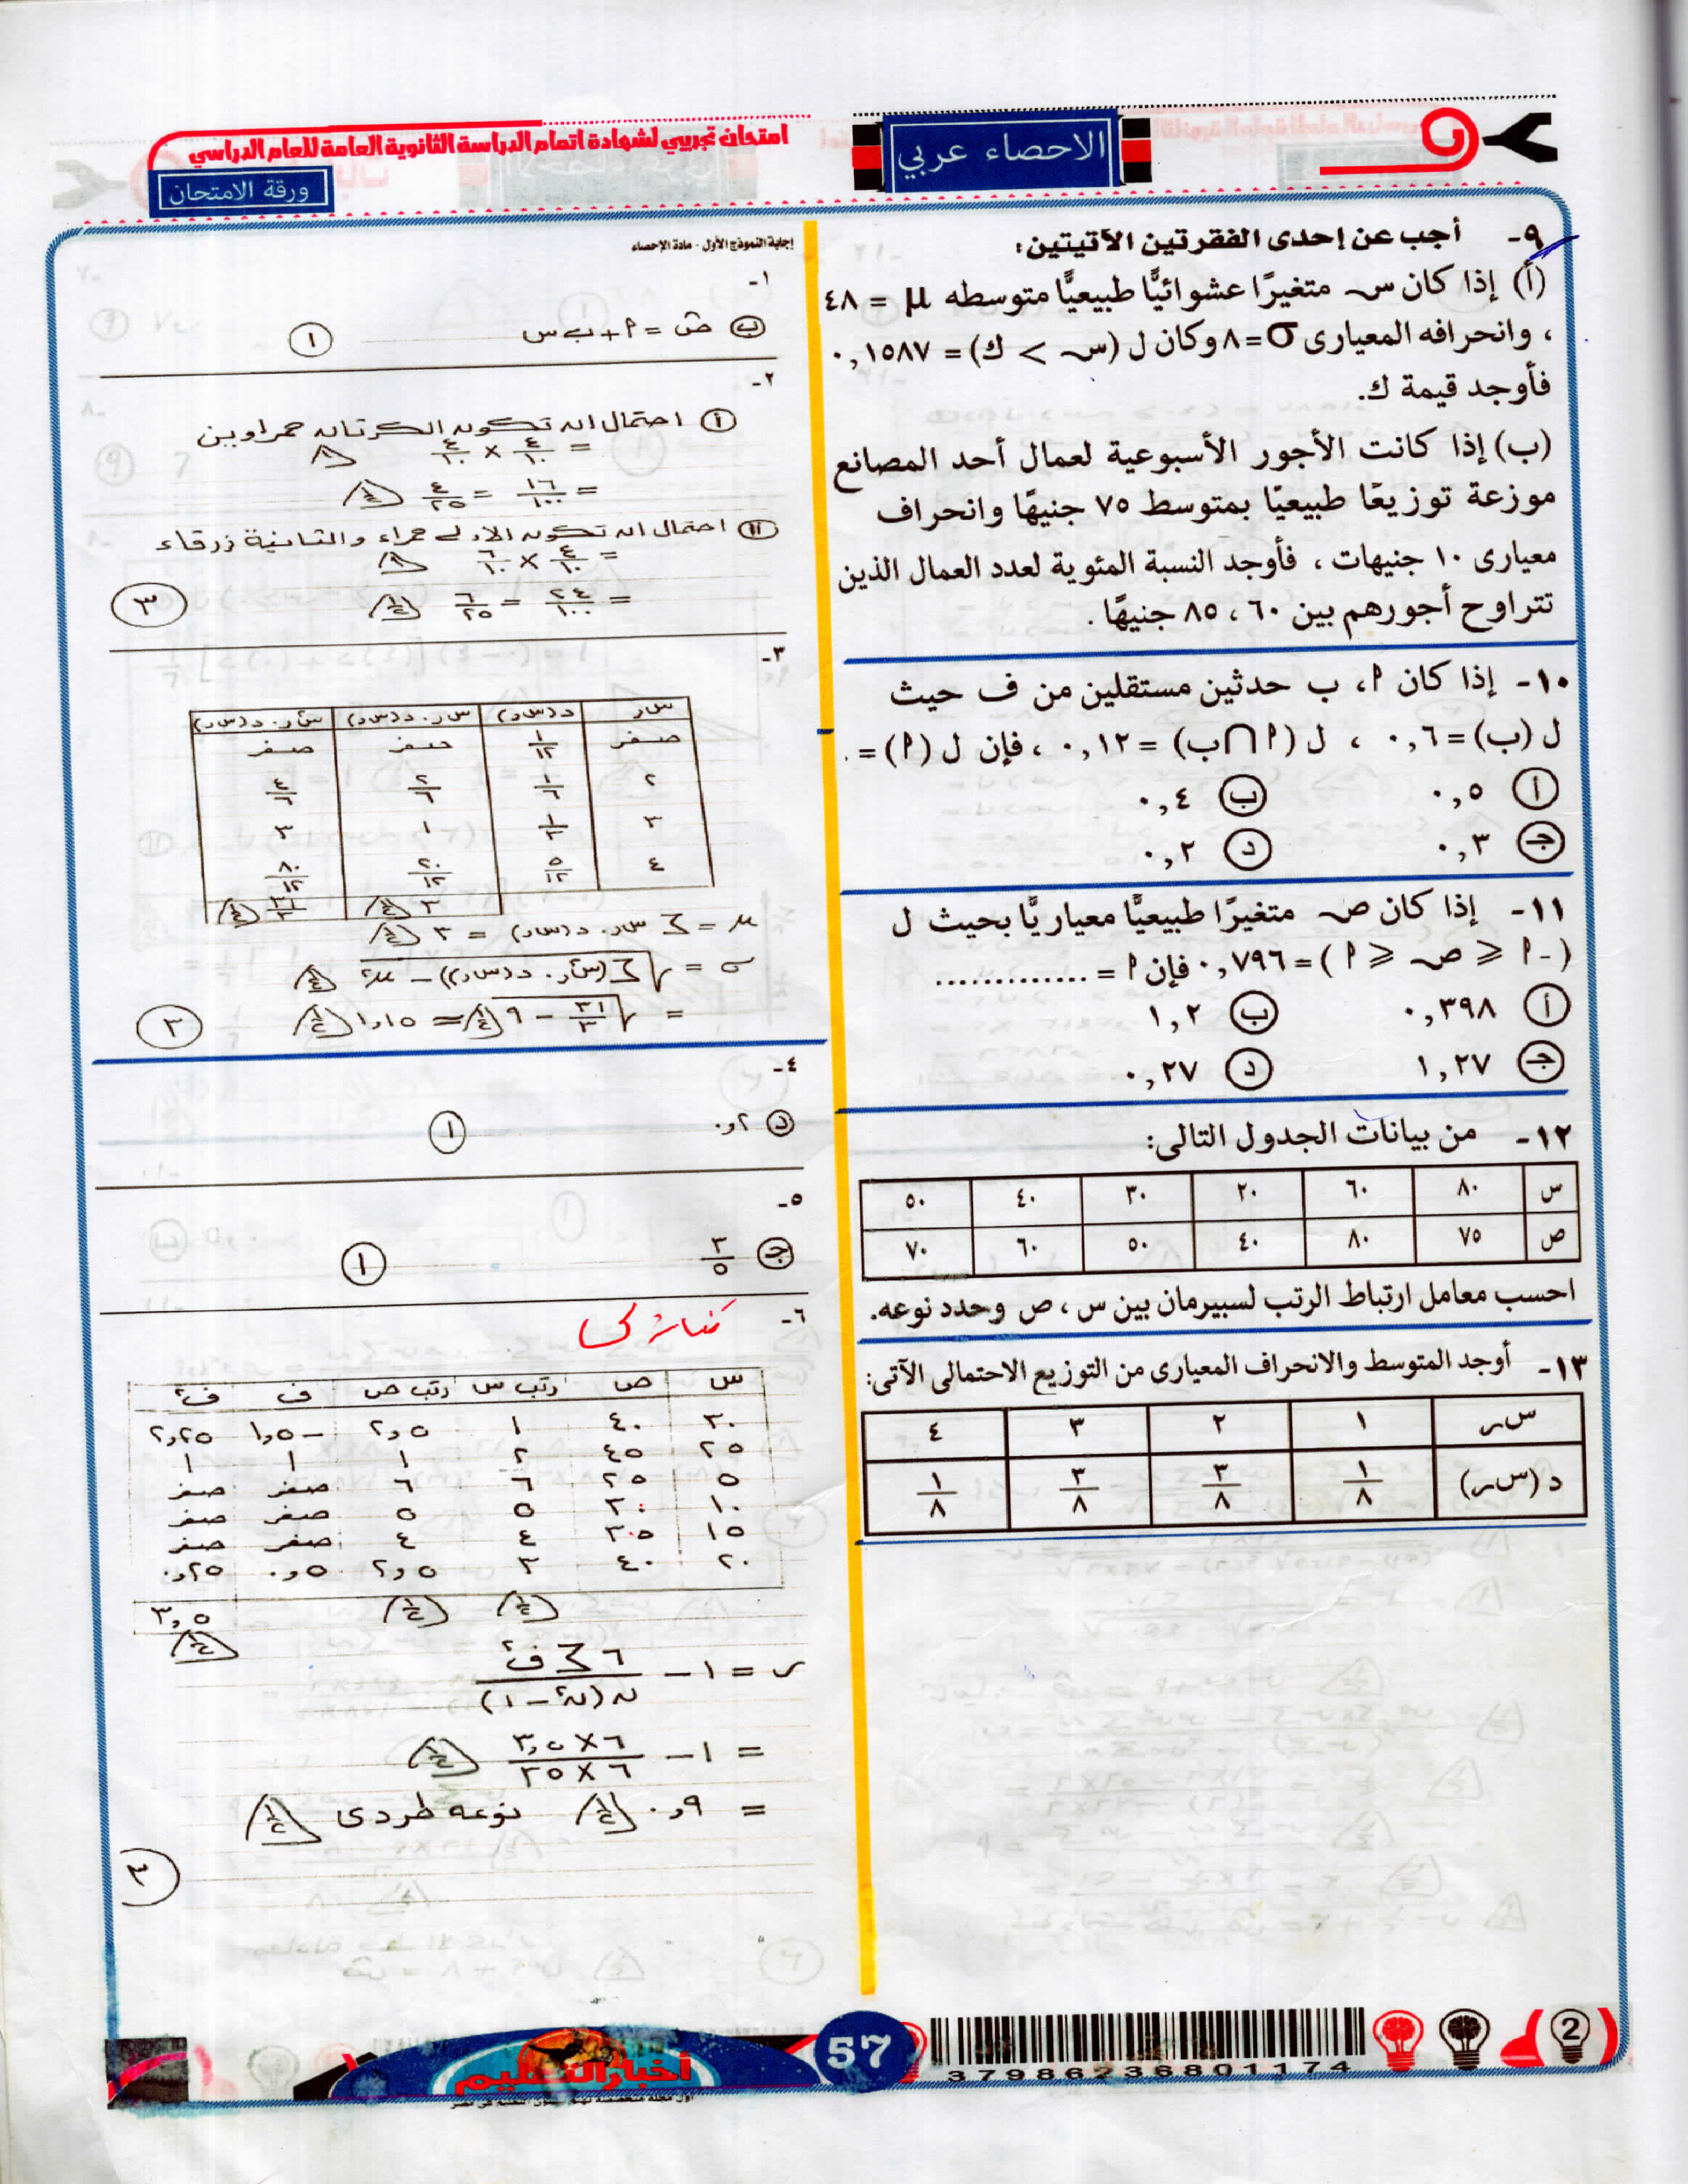 امتحان تجريبي لشهادة اتمام الدراسة الثانوية العامة للعام الدراسي
ورقة الامتحان
الاحصاء عربي
٩- أجب عن إحدى الفقرتين الآتيتين:
(أ) إذا كان س متغيرًا عشوائيًّا طبيعيًّا متوسطه μ = ٤٨
، وانحرافه المعيارى σ = ٨ وكان ل (س > ك) = ٠,١٥٨٧
فأوجد قيمة ك.
(ب) إذا كانت الأجور الأسبوعية لعمال أحد المصانع
موزعة توزيعًا طبيعيًا بمتوسط ٧٥ جنيهًا وانحراف
معيارى ١٠ جنيهات ، فأوجد النسبة المئوية لعدد العمال الذين
تتراوح أجورهم بين ٦٠ ، ٨٥ جنيهًا .
١٠- إذا كان أ، ب حدثين مستقلين من ف حيث
ل (ب) = ٠,٦ ، ل (أ ∩ ب) = ٠,١٢ ، فإن ل (أ) = .
أ ٠,٥ ب ٠,٤
جـ ٠,٣ د ٠,٢
١١- إذا كان ص متغيرًا طبيعيًّا معياريًّا بحيث ل
(-أ ≤ ص ≤ أ) = ٠,٧٩٦ فإن أ = .............
أ ٠,٣٩٨ ب ١,٢
جـ ١,٢٧ د ٠,٢٧
١٢- من بيانات الجدول التالى:
س ٨٠ ٦٠ ٢٠ ٣٠ ٤٠ ٥٠
ص ٧٥ ٨٠ ٤٠ ٥٠ ٦٠ ٧٠
احسب معامل ارتباط الرتب لسبيرمان بين س ، ص وحدد نوعه.
١٣- أوجد المتوسط والانحراف المعيارى من التوزيع الاحتمالى الآتى:
سر ١ ٢ ٣ ٤
د (سر) ١/٨ ٣/٨ ٣/٨ ١/٨
إجابة النموذج الأول - مادة الإحصاء
١-
ب ص = أ + ب س ١
٢-
أ احتمال ان تكون الكرتان حمراوين
= ٤/١٠ × ٤/١٠ ١
= ١٦/١٠٠ = ٤/٢٥ ١/٢
ii احتمال ان تكون الاولى حمراء والثانية زرقاء
= ٤/١٠ × ٦/١٠ ١
= ٢٤/١٠٠ = ٦/٢٥ ١/٢
٣
٣-
سر د(سر) سر . د(سر) سر٢ . د(سر)
صفر ١/١٢ صفر صفر
٢ ١/٦ ٢/٦ ٤/٦
٣ ١/٣ ١ ٣
٤ ٥/١٢ ٢٠/١٢ ٨٠/١٢
٣ ١/٢ ٣١/٣ ١/٢
μ = ∑ سر . د(سر) = ٣ ١/٢
σ = √(∑(سر٢ . د(سر)) - μ٢) ١/٢
= √(٣١/٣ - ٩) ١/٢ = ١,١٥ ١/٢
٣
٤-
د ٠,٢ ١
٥-
جـ ٣/٥ ١
٦-
س ص رتب س رتب ص ف ف٢
٣٠ ٤٠ ١ ٢,٥ -١,٥ ٢,٢٥
٢٥ ٤٥ ٢ ١ ١ ١
٥ ٢٥ ٦ ٦ صفر صفر
١٠ ٣٠ ٥ ٥ صفر صفر
١٥ ٣٥ ٤ ٤ صفر صفر
٢٠ ٤٠ ٣ ٢,٥ ٠,٥ ٠,٢٥
١/٢ ١/٢ ٣,٥
١/٢
ر = ١ - ٦ ∑ ف٢ / ن(ن٢ - ١)
= ١ - ٦ × ٣,٥ / ٦ × ٣٥ ١/٢
= ٠,٩ ١/٢ نوعه طردى ١/٢
٣
أخبار التعليم
57
37986236801174
2